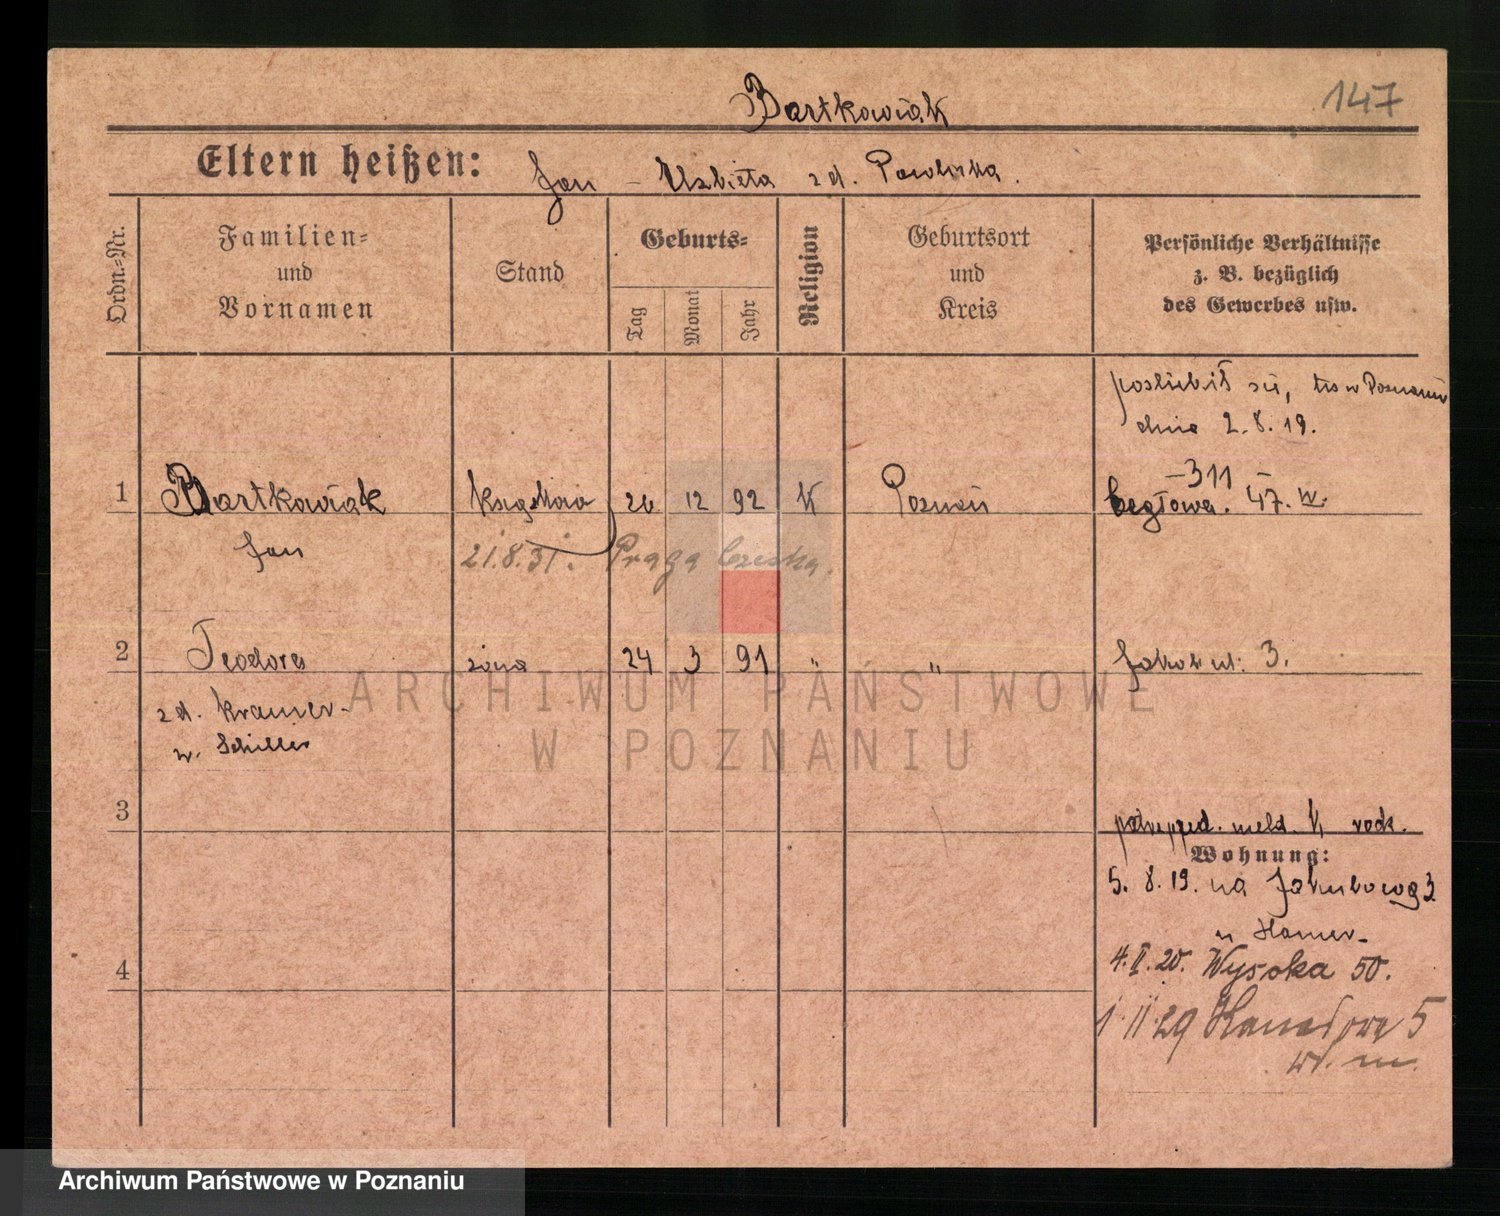 147
Bartkowiak
Eltern heißen: Jan – Elzbieta zd. Pawlicka.
Ordn.=Nr.
Familien=
und
Vornamen
Stand
Geburts=
Tag
Monat
Jahr
Religion
Geburtsort
und
Kreis
Persönliche Verhältnisse
z. B. bezüglich
des Gewerbes usw.
poslubił się, w Poznaniu
dnia 2.8.19.
– 311 –
1 Bartkowiak 26 12 92 K Poznań 47. IV.
Jan
21.8.31. Praga Czeska.
2 Teodora żona 24 3 91 " " 3.
zd. Kramer-
w. Schiller
3
meld. K
Wohnung:
5. 8. 19. na Jakubową 3
u Hamer-
4
4. II. 20. Wysoka 50.
1 II 29 5
ARCHIWUM PAŃSTWOWE
W POZNANIU
Archiwum Państwowe w Poznaniu